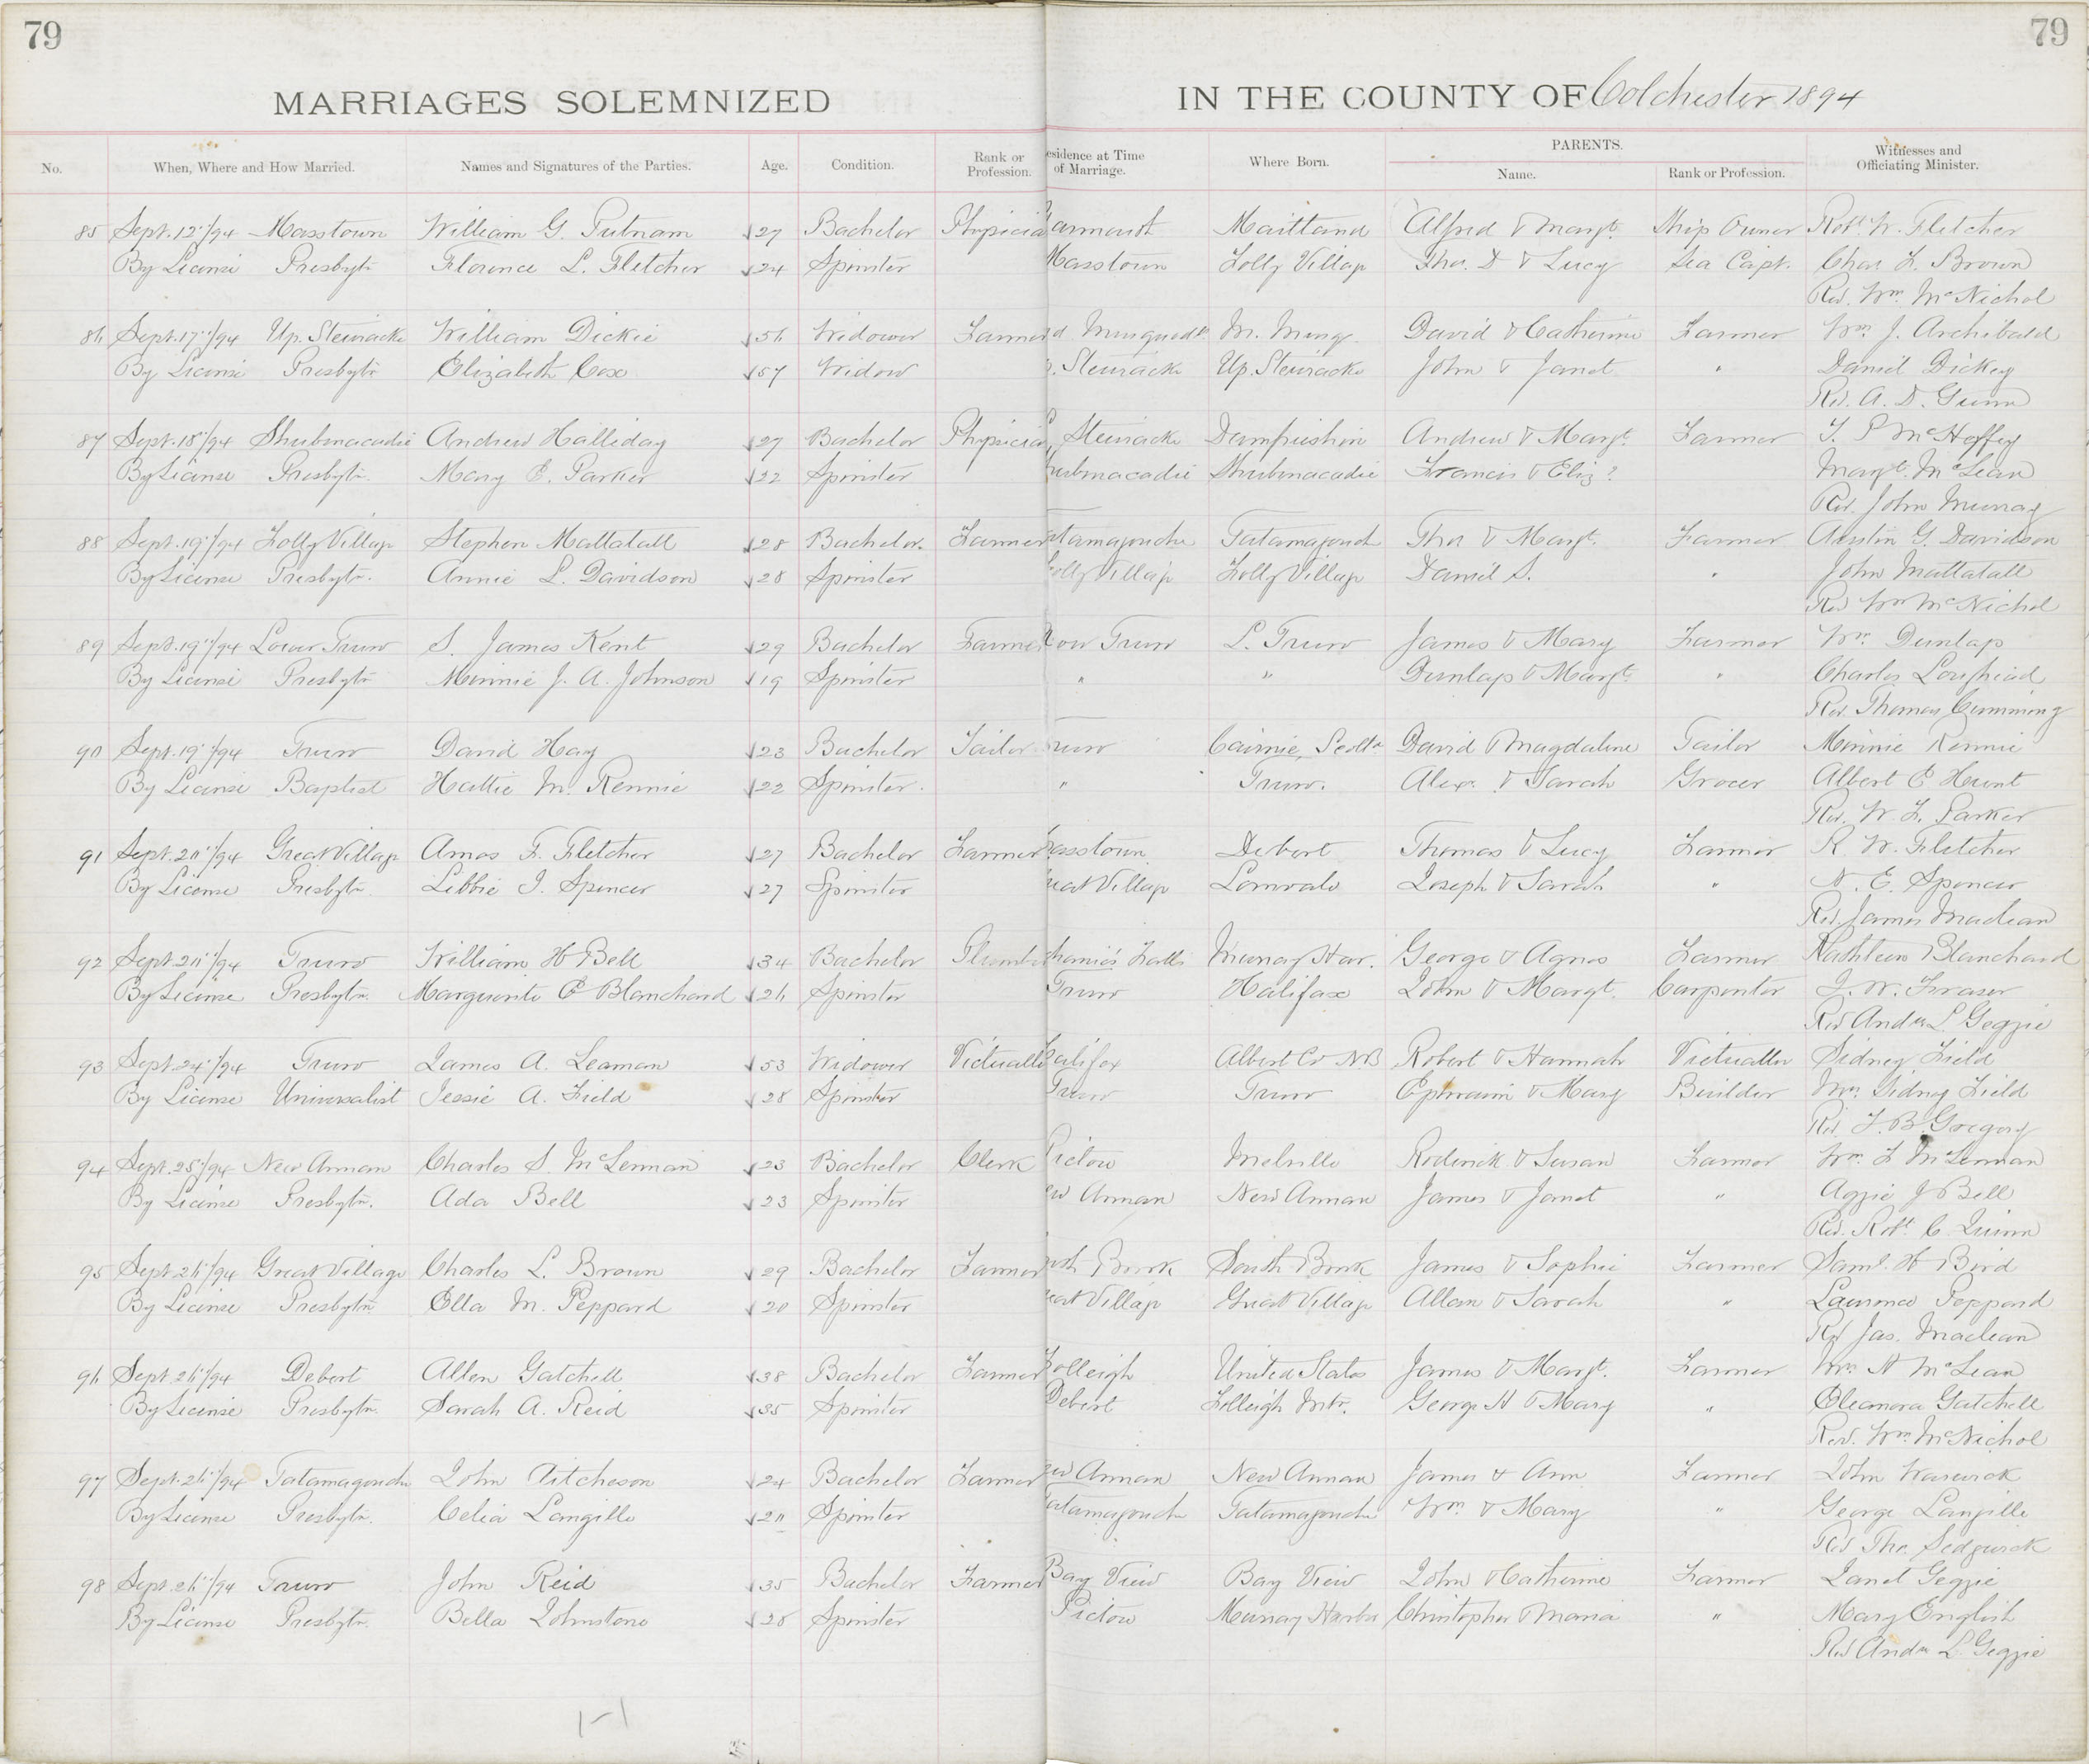 79
79
MARRIAGES SOLEMNIZED IN THE COUNTY OF Colchester 1894
No. When, Where and How Married. Names and Signatures of the Parties. Age. Condition. Rank or Profession. esidence at Time of Marriage. Where Born. PARENTS. Name. Rank or Profession. Witnesses and Officiating Minister.
85 Sept. 12"/94 Masstown William G. Putnam 27 Bachelor Physicia armouth Maitland Alfred & Margt. Ship Owner Robt. W. Fletcher
By License Presbytn Florence L. Fletcher 24 Spinster Masstown Folly Village Tho. D & Lucy Sea Capt. Chas L. Brown
Rev. Wm. McNichol
86 Sept. 17"/94 Up. Stewiacke William Dickie 56 Widower Farmer d Musquodt. M. Musq. David & Catherine Farmer Wm. J. Archibald
By License Presbytn Elizabeth Cox 57 Widow . Stewiacke Up. Stewiacke John & Janet " Daniel Dickey
Rev. A. D. Gunn
87 Sept. 18"/94 Shubenacadie Andrew Halliday 27 Bachelor Physicia Stewiacke Dumfrieshire Andrew & Margt. Farmer
By License Presbytn. Mary E. Parker 22 Spinster ubenacadie Shubenacadie Francis & Eliz? Margt. McLean
Rev. John Murray
88 Sept. 19"/94 Folly Village Stephen Mattatall 28 Bachelor. Farmer atamagouche Tatamagouch Thos & Margt. Farmer Austin G. Davidson
By License Presbytn. Annie L. Davidson 28 Spinster Folly Village Folly Village Daniel S. " John Mattatall
Rev Wm McNichol
89 Sept. 19"/94 Lower Truro S. James Kent 29 Bachelor Farmer ow Truro L. Truro James & Mary Farmer Wm. Dunlap
By License Presbytn Minnie J. A. Johnson 19 Spinster " " Dunlap & Margt. " Charles Loughead
Rev. Thomas Cumming
90 Sept. 19"/94 Truro David Hay 23 Bachelor Tailor ruro Cairnie, Scotld David & Magdaline Tailor Minnie Rennie
By License Baptist Hattie M. Rennie 22 Spinster. " Truro. Alex. & Sarah Grocer Albert E Hunt
Rev. W. F. Parker
91 Sept. 20"/94 Great Village Amos F. Fletcher 27 Bachelor Farmer asstown Debert Thomas & Lucy Farmer R. W. Fletcher
By License Presbytn. Libbie I. Spencer 27 Spinster reat Village Lornvale Joseph & Sarah " N. E. Spencer
Rev James Maclean
92 Sept. 20"/94 Truro William H Bell 34 Bachelor Plumbe Falls Murray Har. George & Agnes Farmer Kathleen Blanchard
By License Presbytn. Marguerite E Blanchard 26 Spinster Truro Halifax John & Margt. Carpenter J. W. Fraser
Rev Andw L. Geggie
93 Sept. 24"/94 Truro James A. Leaman 53 Widower Victualle alifax Albert Co N.B Robert & Hannah Victualler Sidney Field
By License Universalist Jessie A. Field 28 Spinster Truro Truro Ephraim & Mary Builder Mrs. Sidney Field
Rev. F. B. Gregory
94 Sept. 25"/94 New Annan Charles S. McLennan 23 Bachelor Clerk Pictou Melville Roderick & Susan Farmer Wm. F McLennan
By License Presbytn. Ada Bell 23 Spinster ew Annan New Annan James & Janet " Aggie J Bell
Rev. Robt C. Quinn
95 Sept. 26"/94 Great Village Charles L. Brown 29 Bachelor Farmer Brook South Brook James & Sophie Farmer Saml. H Bird
By License Presbytn Ella M. Peppard 20 Spinster reat Village Great Village Allan & Sarah " Laurence Peppard
Rev Jas. Maclean
96 Sept. 26"/94 Debert Allen Gatchell 38 Bachelor Farmer Folleigh United States James & Margt. Farmer Wm. A McLean
By License Presbytn. Sarah A. Reid 35 Spinster Debert Folleigh Mtn. George H & Mary " Eleanora Gatchell
Rev. Wm. McNichol
97 Sept. 26"/94 Tatamagouche John Aitcheson 24 Bachelor Farmer ew Annan New Annan James & Ann Farmer John Warwick
By License Presbytn. Celia Langille 20 Spinster atamagouche Tatamagouche Wm & Mary " George Langille
Rev Tho. Sedgwick
98 Sept. 26"/94 Truro John Reid 35 Bachelor Farmer Bay View Bay View John & Catherine Farmer Janet Geggie
By License Presbytn. Bella Johnstone 28 Spinster Pictou Murray Harbor Christopher & Maria " Mary English
Rev Andw L. Geggie